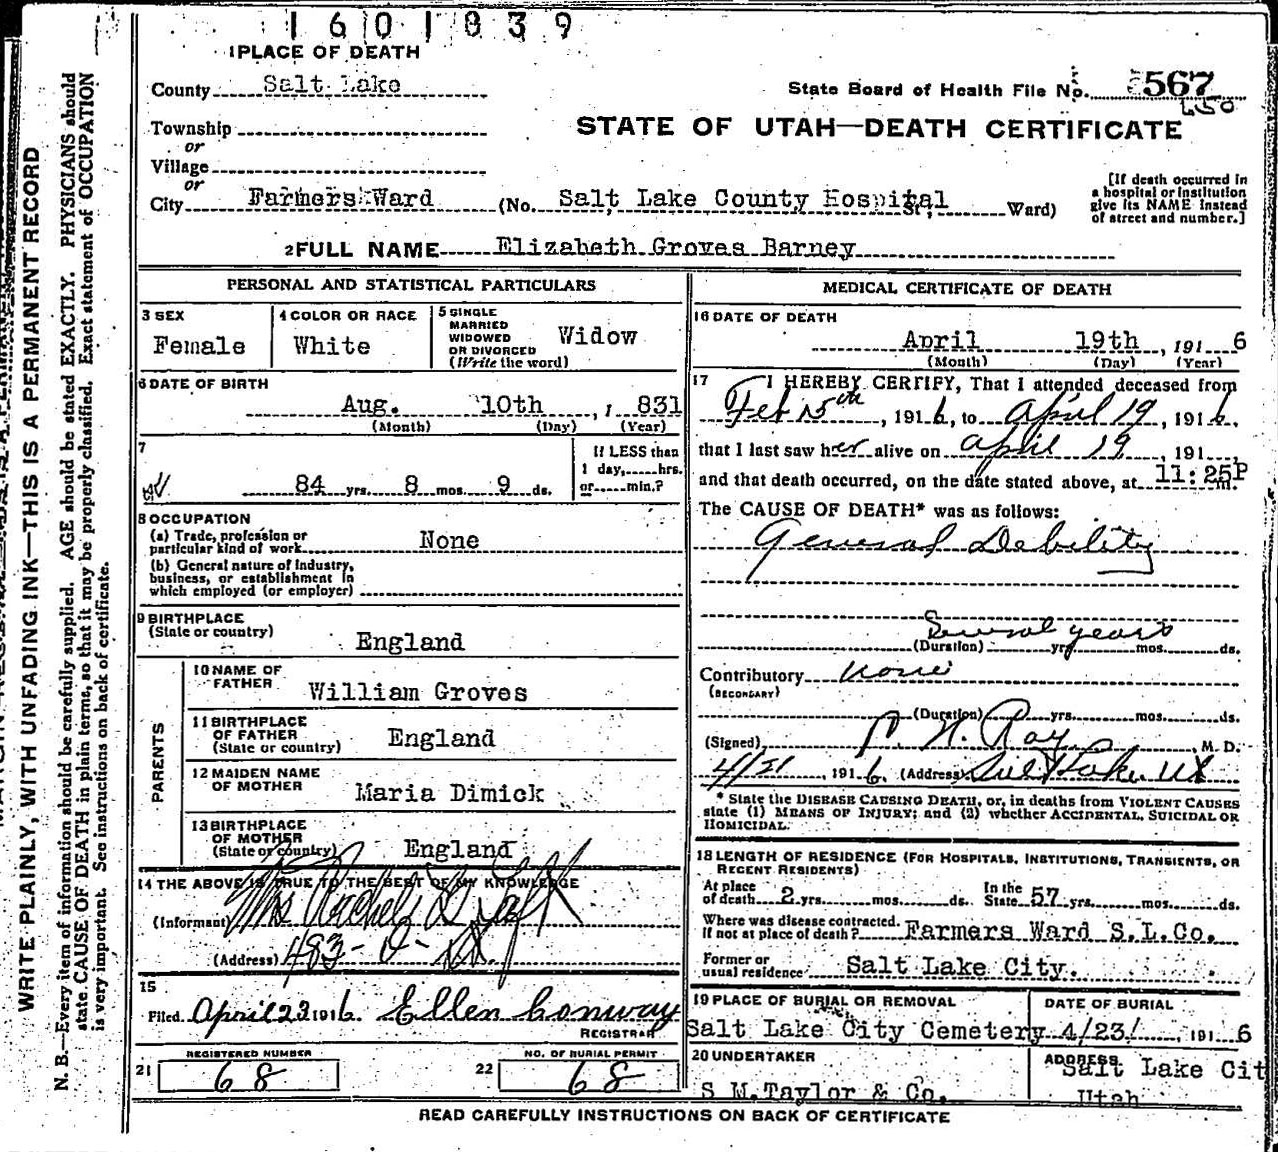 1601839
1 PLACE OF DEATH
County Salt Lake
State Board of Health File No. 567
Township
or
Village
or
City Farmers Ward (No. Salt Lake County Hospital St., Ward)
STATE OF UTAH—DEATH CERTIFICATE
[If death occurred in
a hospital or institution
give its NAME instead
of street and number.]
2 FULL NAME Elizabeth Groves Barney
PERSONAL AND STATISTICAL PARTICULARS
3 SEX
Female
4 COLOR OR RACE
White
5 SINGLE
MARRIED
WIDOWED
OR DIVORCED
(Write the word)
Widow
6 DATE OF BIRTH
Aug. 10th, 1831
(Month) (Day) (Year)
7
84 yrs. 8 mos. 9 ds.
If LESS than
1 day, hrs.
or min.?
8 OCCUPATION
(a) Trade, profession or
particular kind of work None
(b) General nature of industry,
business, or establishment in
which employed (or employer)
9 BIRTHPLACE
(State or country)
England
PARENTS
10 NAME OF
FATHER
William Groves
11 BIRTHPLACE
OF FATHER
(State or country)
England
12 MAIDEN NAME
OF MOTHER
Maria Dimick
13 BIRTHPLACE
OF MOTHER
(State or country)
England
14 THE ABOVE IS TRUE TO THE BEST OF MY KNOWLEDGE
(Informant) Mrs Rachel
(Address) 483
15
Filed April 23 1916. Ellen Conway
REGISTRAR
21
REGISTERED NUMBER
68
22
NO. OF BURIAL PERMIT
68
MEDICAL CERTIFICATE OF DEATH
16 DATE OF DEATH
April 19th, 1916
(Month) (Day) (Year)
17 I HEREBY CERTIFY, That I attended deceased from
Feb 15th, 1916, to April 19, 1916,
that I last saw her alive on April 19, 191
and that death occurred, on the date stated above, at 11:25P m.
The CAUSE OF DEATH* was as follows:
General Debility
Several years
(Duration) yrs. mos. ds.
Contributory none
(SECONDARY)
(Duration) yrs. mos. ds.
(Signed) Ray, M. D.
4/21, 1916. (Address) Salt Lake Ut
* State the DISEASE CAUSING DEATH, or, in deaths from VIOLENT CAUSES
state (1) MEANS OF INJURY; and (2) whether ACCIDENTAL, SUICIDAL OR
HOMICIDAL.
18 LENGTH OF RESIDENCE (FOR HOSPITALS, INSTITUTIONS, TRANSIENTS, OR
RECENT RESIDENTS)
At place
of death 2 yrs. mos. ds.
In the
State 57 yrs. mos. ds.
Where was disease contracted,
if not at place of death? Farmers Ward S.L.Co.
Former or
usual residence Salt Lake City.
19 PLACE OF BURIAL OR REMOVAL
Salt Lake City Cemetery
DATE OF BURIAL
4/23/, 1916
20 UNDERTAKER
S M.Taylor & Co.
ADDRESS
Salt Lake Cit
Utah
READ CAREFULLY INSTRUCTIONS ON BACK OF CERTIFICATE
WRITE PLAINLY, WITH UNFADING INK—THIS IS A PERMANENT RECORD
N. B.—Every item of information should be carefully supplied. AGE should be stated EXACTLY. PHYSICIANS should
state CAUSE OF DEATH in plain terms, so that it may be properly classified. Exact statement of OCCUPATION
is very important. See instructions on back of certificate.